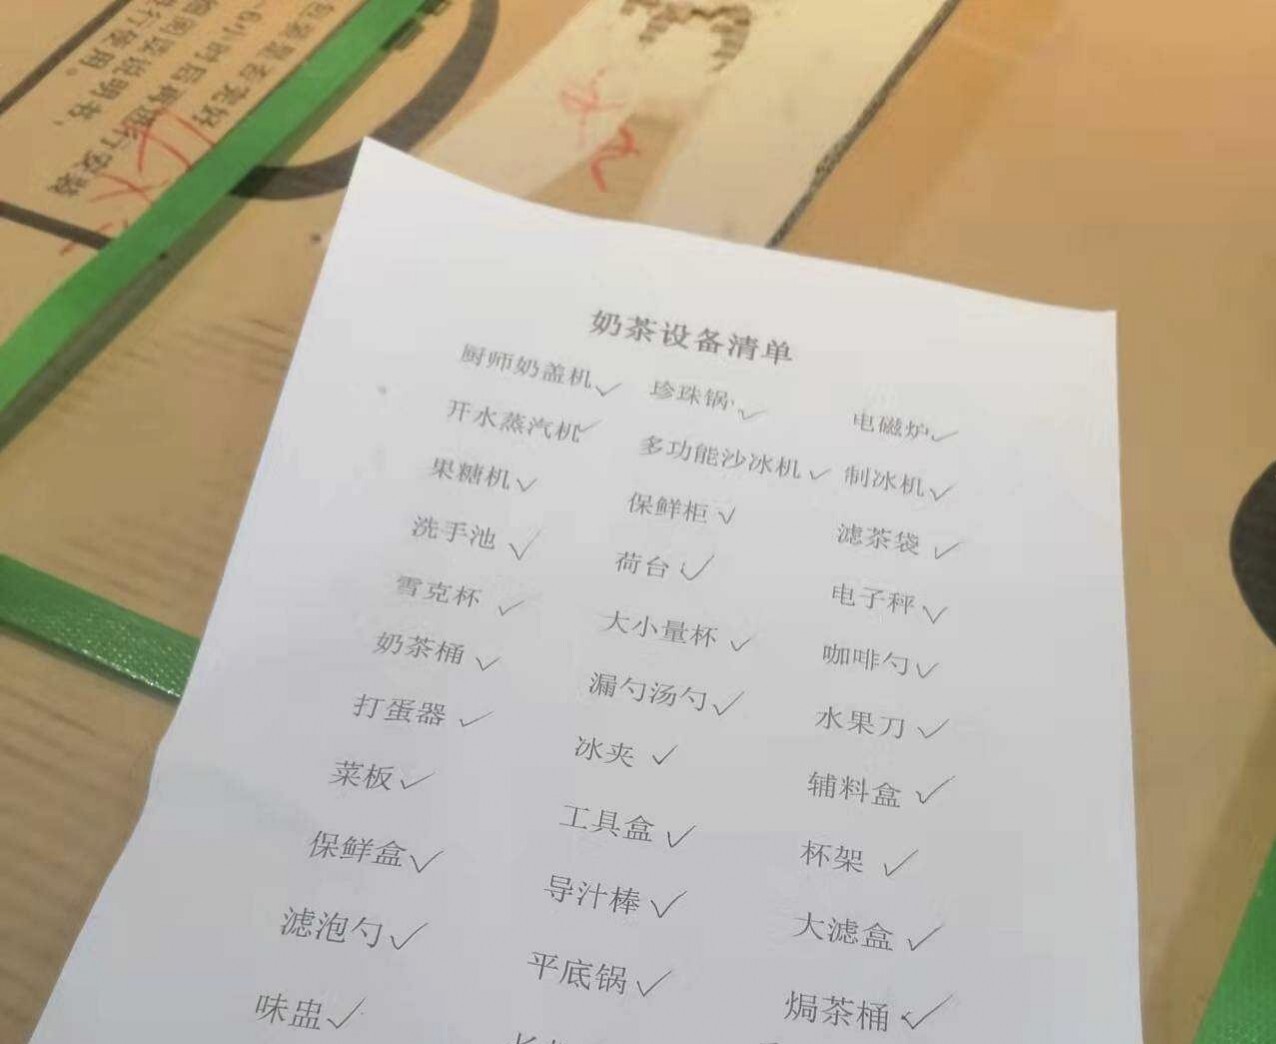 奶茶设备清单
厨师奶盖机 珍珠锅 电磁炉
开水蒸汽机 多功能沙冰机 制冰机
果糖机 保鲜柜 滤茶袋
洗手池 荷台 电子秤
雪克杯 大小量杯 咖啡勺
奶茶桶 漏勺汤勺 水果刀
打蛋器 冰夹 辅料盒
菜板 工具盒 杯架
保鲜盒 导汁棒 大滤盒
滤泡勺 平底锅 焗茶桶
味盅
包装是否完好
6小时后再进行安装
细阅读说明书，
行使用。